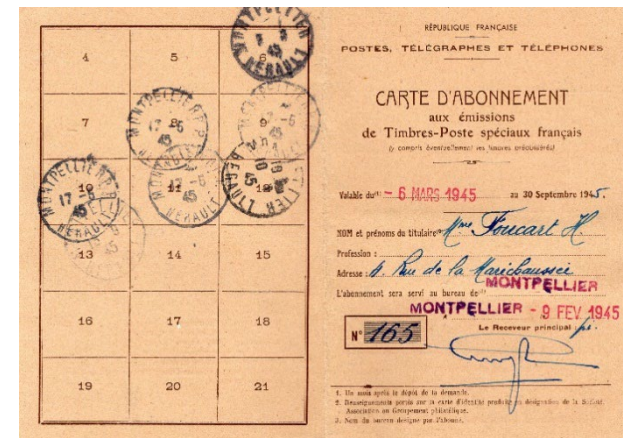 4 5 6
7 8 9
10 11 12
13 14 15
16 17 18
19 20 21
MONTPELLIER
HERAULT
MONTPELLIER R.P.
17 -5
45
HERAULT
MONTPELLIER R.P.
17 -5
45
HERAULT
RÉPUBLIQUE FRANÇAISE
POSTES, TÉLÉGRAPHES ET TÉLÉPHONES
CARTE D'ABONNEMENT
aux émissions
de Timbres-Poste spéciaux français
(y compris éventuellement les timbres préoblitérés)
Valable du(1) - 6 MARS 1945 au 30 Septembre 1945.
NOM et prénoms du titulaire(2) Mme Foucart H.
Profession :
Adresse : Rue de la Maréchaussée
MONTPELLIER
L'abonnement sera servi au bureau de(3)
MONTPELLIER - 9 FEV 1945
Le Receveur principal
N° 165
1. Un mois après le dépôt de la demande.
2. Renseignements portés sur la carte d'identité produite ou désignation de la Société,
Association ou Groupement philatélique.
3. Nom du bureau désigné par l'abonné.